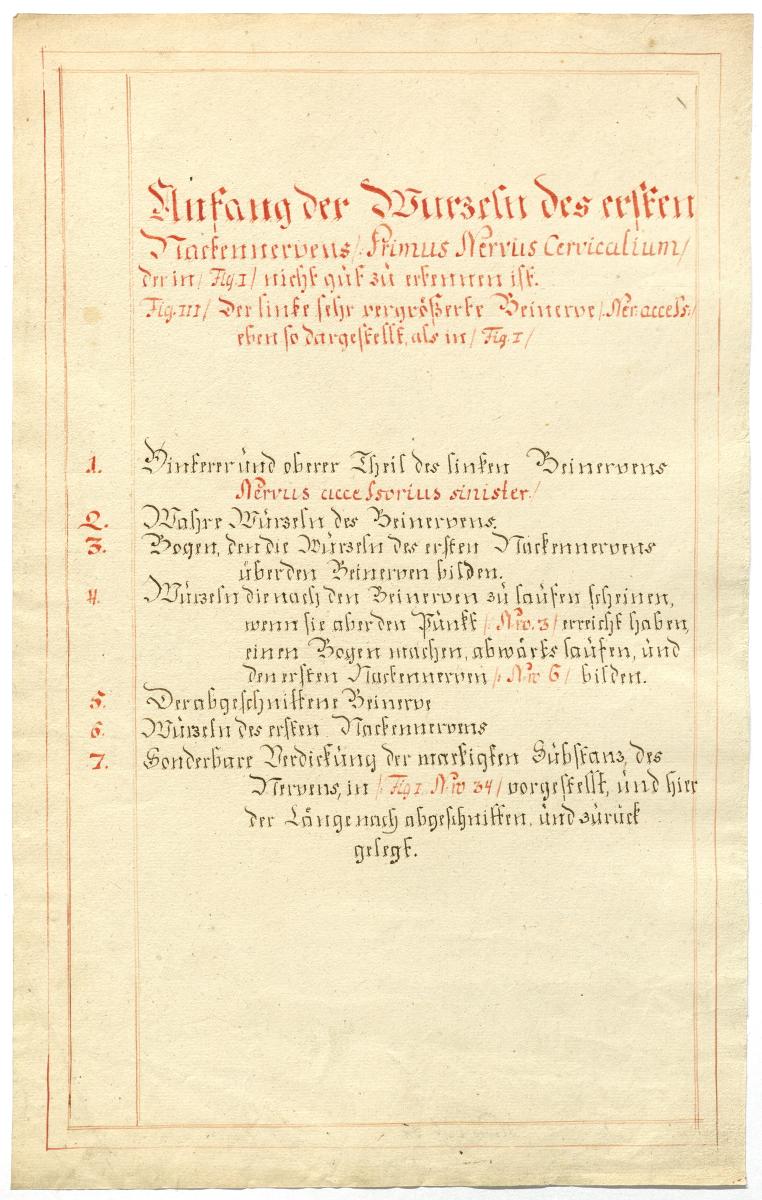 Anfang der Wurzeln des ersten
Nackennervens /: Primus Nervus Cervicalium /
der in / Fig. I / nicht gut zu erkennen ist.
Fig. III / Der linke sehr vergrößerte Beinerve /: Ner. access: /
eben so dargestellt, als in / Fig. I /
1. Hinterer und oberer Theil des linken Beinervens
Nervus accessorius sinister /
2. Wahre Wurzeln des Beinervens.
3. Bogen, den die Wurzeln des ersten Nackennervens
über den Beinerven bilden.
4. Wurzeln die nach den Beinerven zu laufen scheinen,
wenn sie aber den Punkt /: Nro. 3 / erreicht haben,
einen Bogen machen, abwärts laufen, und
den ersten Nackennerven /: Nro 6 / bilden.
5. Der abgeschnittene Beinerve
6. Wurzeln des ersten Nackennervens
7. Sonderbare Verdickung der markigten Substanz, des
Nervens, in /: Fig I. Nro 34 / vorgestellt, und hier
der Länge nach abgeschnitten, und zurück
gelegt.